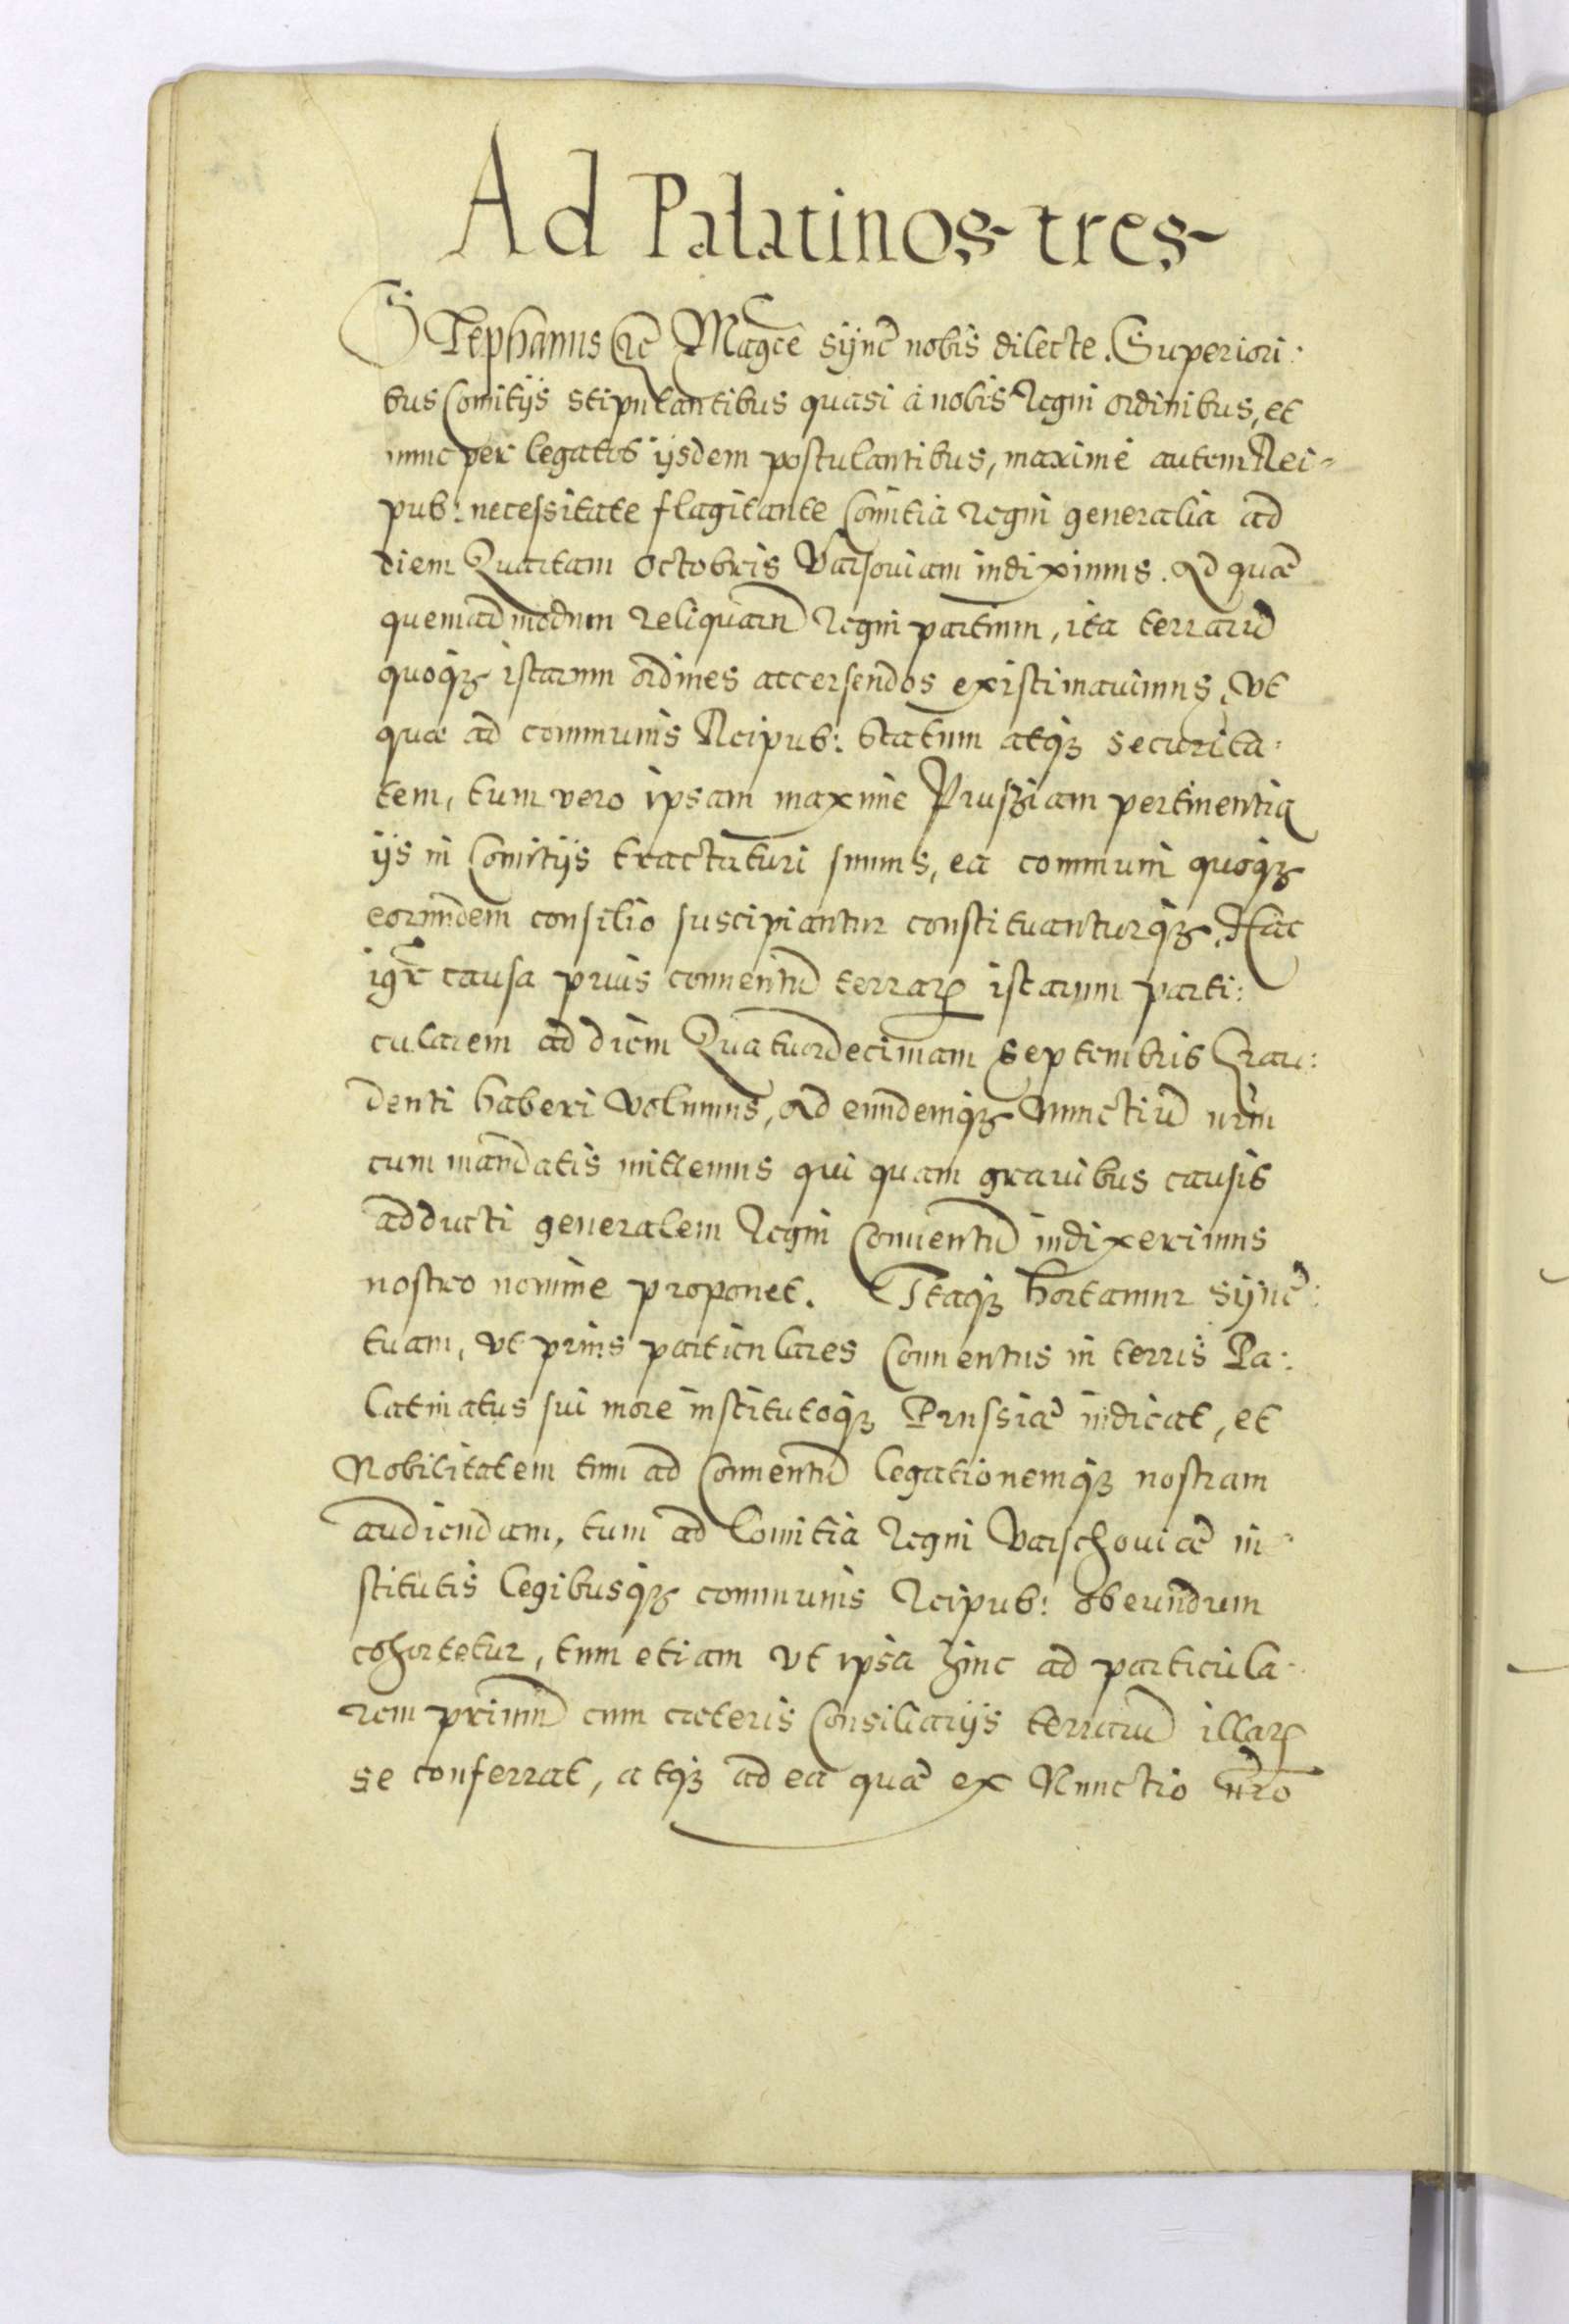 Ad Palatinos tres
Stephanus etc Magce sÿncē nobis dilecte. Superiori:
bus Comitÿs stipulantibus quasi à nobis Regni ordinibus, et
nunc per legatos ÿsdem postulantibus, maximè autem Rei-
pub: necessitate flagitante Comitia regni generalia ad
diem Quartam Octobris Varsouiam indiximus. Ad quæ
quemadmodum reliquarū Regni partium, ita terrarū
quoqꝫ istarum ordines accersendos existimauimus, Vt
quæ ad communis Reipub: statum atqꝫ securita:
tem, tum vero ipsam maxime Prussiam pertinentia
ÿs in Comitÿs tractaturi sumus, ea communi quoqꝫ
eorundem consilio suscipiantur constituanturqꝫ. Hac
igr̃ causa prius conuentū terrarꝝ istarum parti:
cularem ad diem Quatuordecimam Septembris Grau:
denti haberi volumus, Ad eundemqꝫ Nunctiū nr̃m
cum mandatis mittemus qui quam grauibus causis
adducti generalem Regni Conuentū indixerimus
nostro nomine proponet. Itaqꝫ hortamur sÿncē:
tuam, vt prius particulares Conuentus in terris Pa:
latinatus sui more institutoqꝫ Prussiæ indicat, et
Nobilitatem tum ad Conuentū legationemqꝫ nostram
audiendam, tum ad Comitia Regni Varschouiæ in-
stitutis legibusqꝫ communis Reipub: obeundum
cohortetur, tum etiam vt ipsa hinc ad particula-
rem primū cum cæteris Consiliarÿs terrarū illarꝝ
se conferrat, atqꝫ ad ea quæ ex Nunctio nr̃o